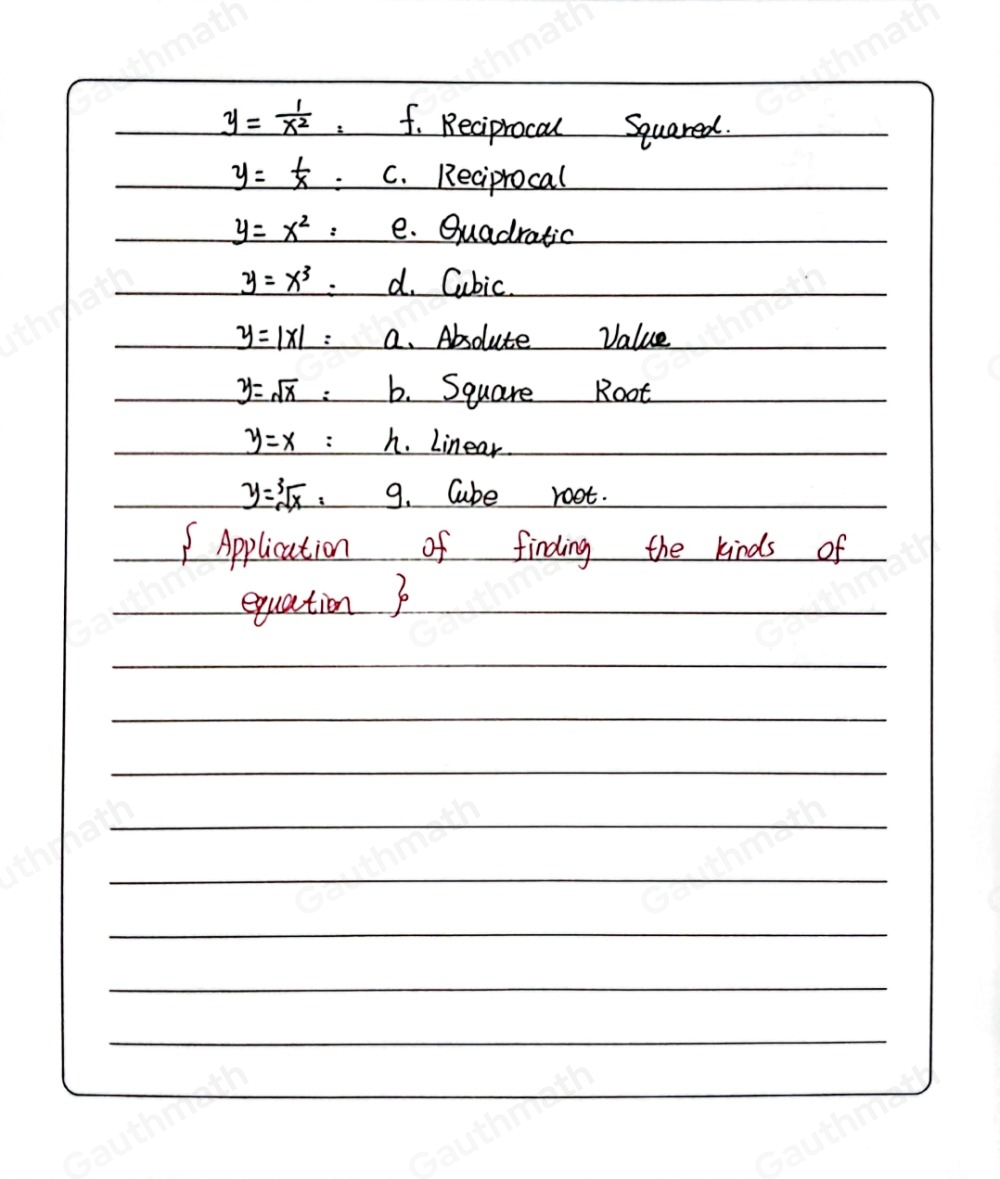 y = 1/x² : f. Reciprocal Squared.
y = 1/x : c. Reciprocal
y = x² : e. Quadratic
y = x³ : d. Cubic.
y = |x| : a. Absolute Value
y = √x : b. Square Root
y = x : h. Linear.
y = ³√x : g. Cube root.
{ Application of finding the kinds of
equation }
Gauthmath